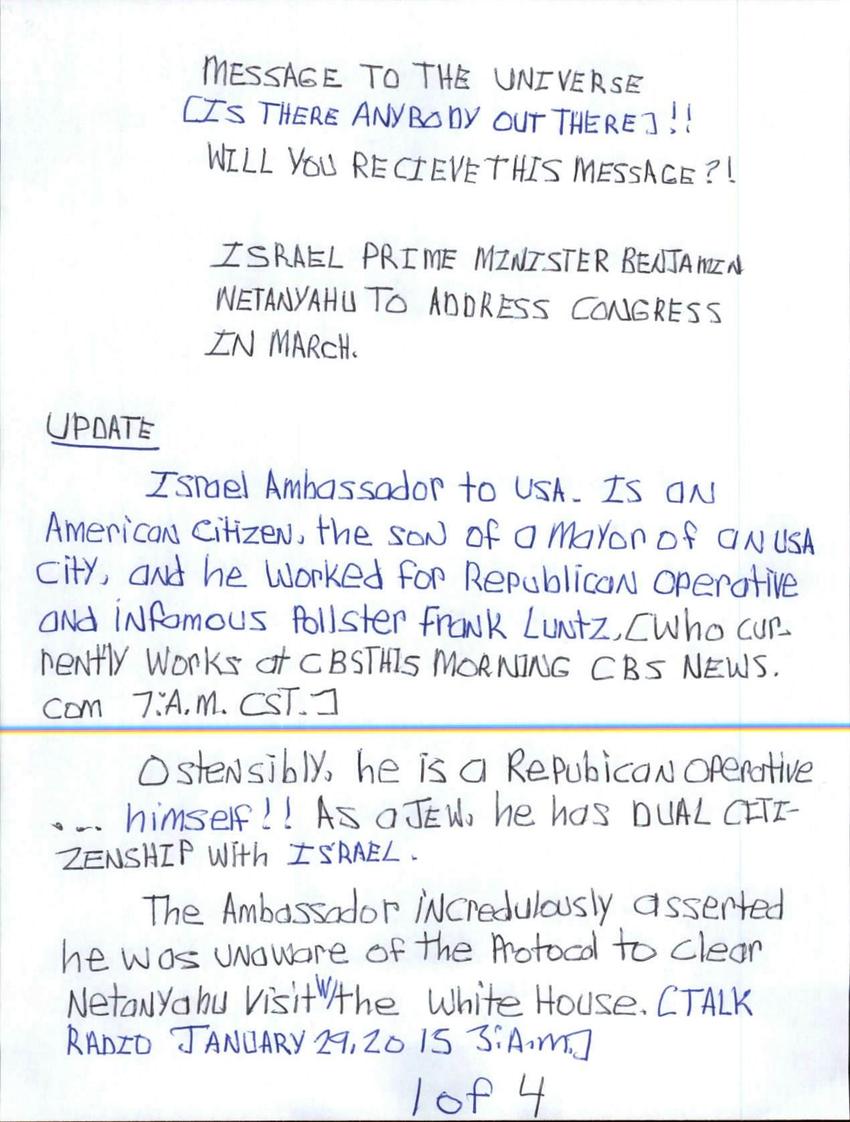 MESSAGE TO THE UNIVERSE
[IS THERE ANYBODY OUT THERE] !!
WILL YOU RECIEVE THIS MESSAGE?!
ISRAEL PRIME MINISTER BENJAMIN
NETANYAHU TO ADDRESS CONGRESS
IN MARCH.
UPDATE
Israel Ambassador to USA. IS AN
American Citizen, the son of a Mayor of AN USA
City, and he worked for Republican operative
and infamous Pollster Frank Luntz, [Who cur-
rently Works at CBSTHIS MORNING CBS NEWS.
com 7:A.M. CST.]
Ostensibly, he is a Repubican operative
... himself!! As a JEW, he has DUAL CITI-
ZENSHIP with ISRAEL.
The Ambassador incredulously asserted
he was unaware of the Protocol to clear
Netanyahu Visit w/the White House. [TALK
RADIO JANUARY 29, 2015 3:A.m.]
1 of 4